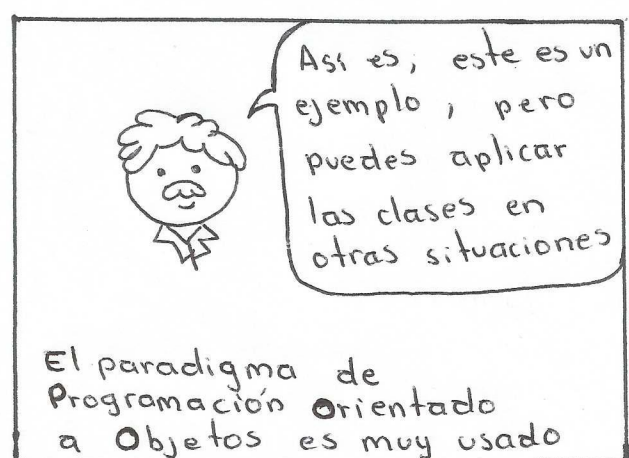 Así es, este es un
ejemplo, pero
puedes aplicar
las clases en
otras situaciones
El paradigma de
Programación Orientado
a Objetos es muy usado